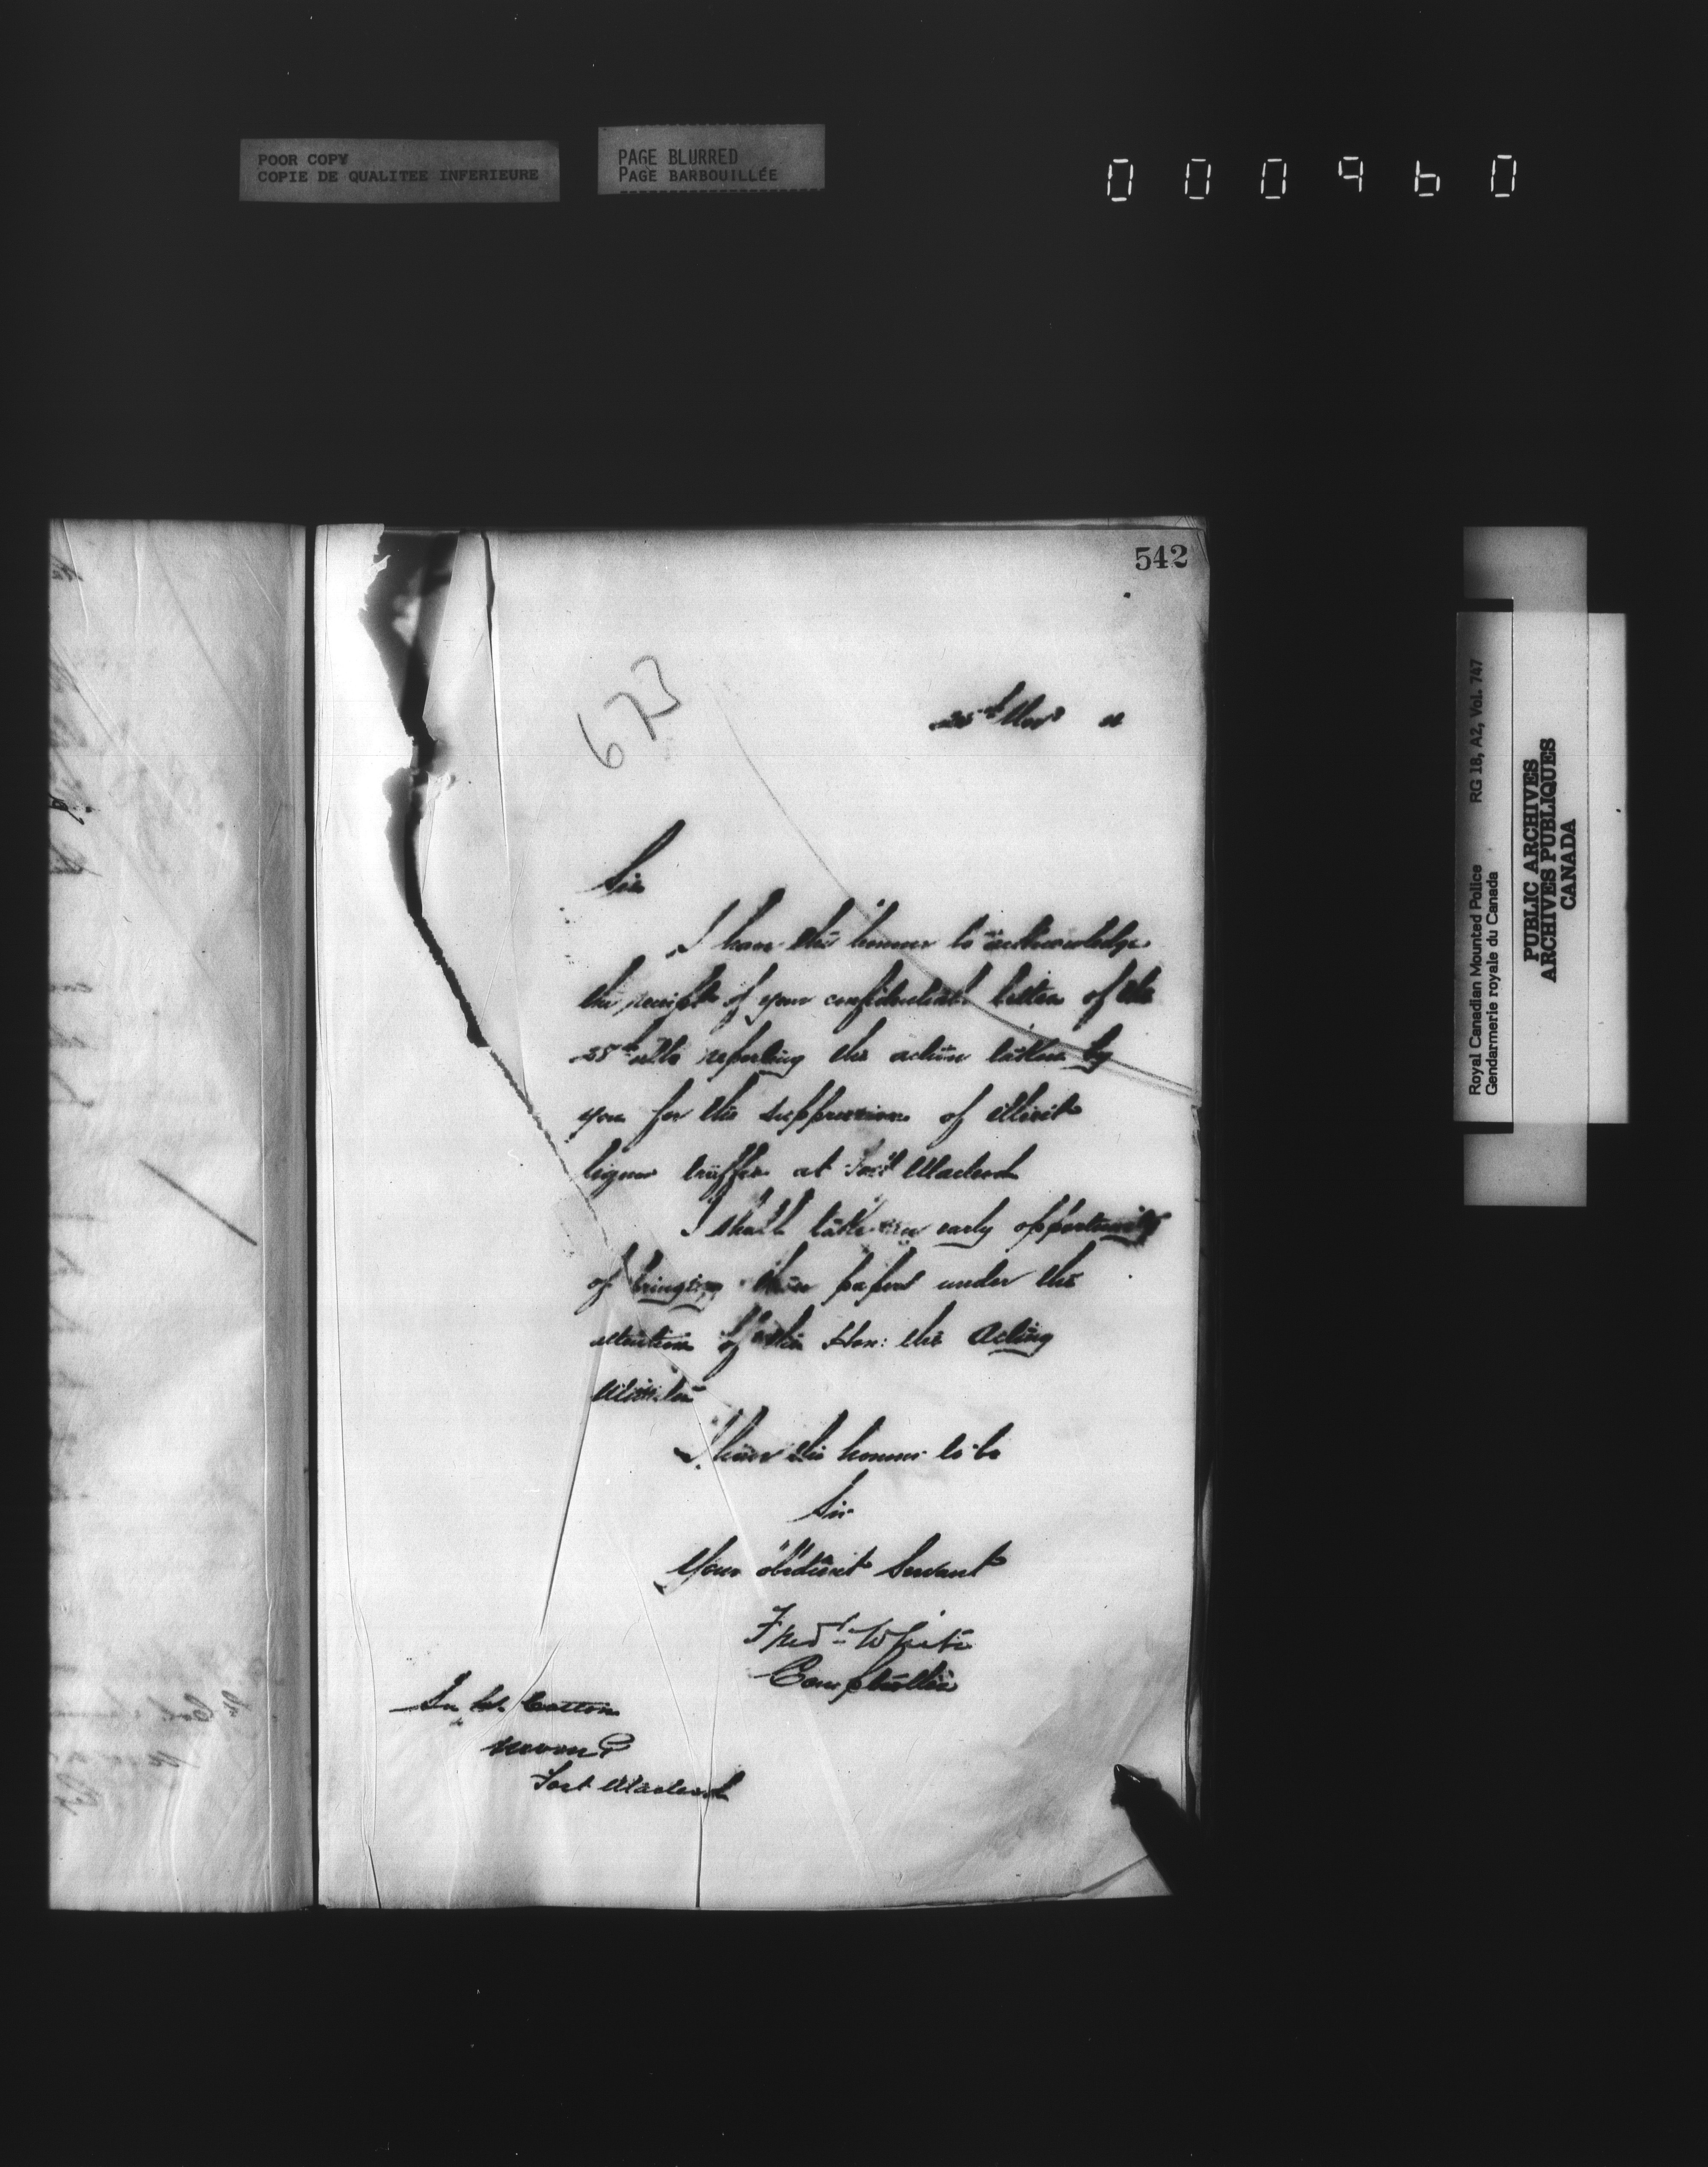 POOR COPY
COPIE DE QUALITEE INFERIEURE
PAGE BLURRED
PAGE BARBOUILLÉE
000960
542
673
25th Nov
Sir
I have the honour to acknowledge
the receipt of your confidential letter of the
25th ulto reporting the action taken by
you for the suppression of illicit
liquor traffic at Fort Macleod
I shall take an early opportunity
of bringing these papers under the
attention of the Hon: the Acting
Minister
I have the honour to be
Sir
Your obedient Servant
Fred White
Comptroller
Cotton
Fort Macleod
Royal Canadian Mounted Police
Gendarmerie royale du Canada
RG 18, A2, Vol. 747
PUBLIC ARCHIVES
ARCHIVES PUBLIQUES
CANADA